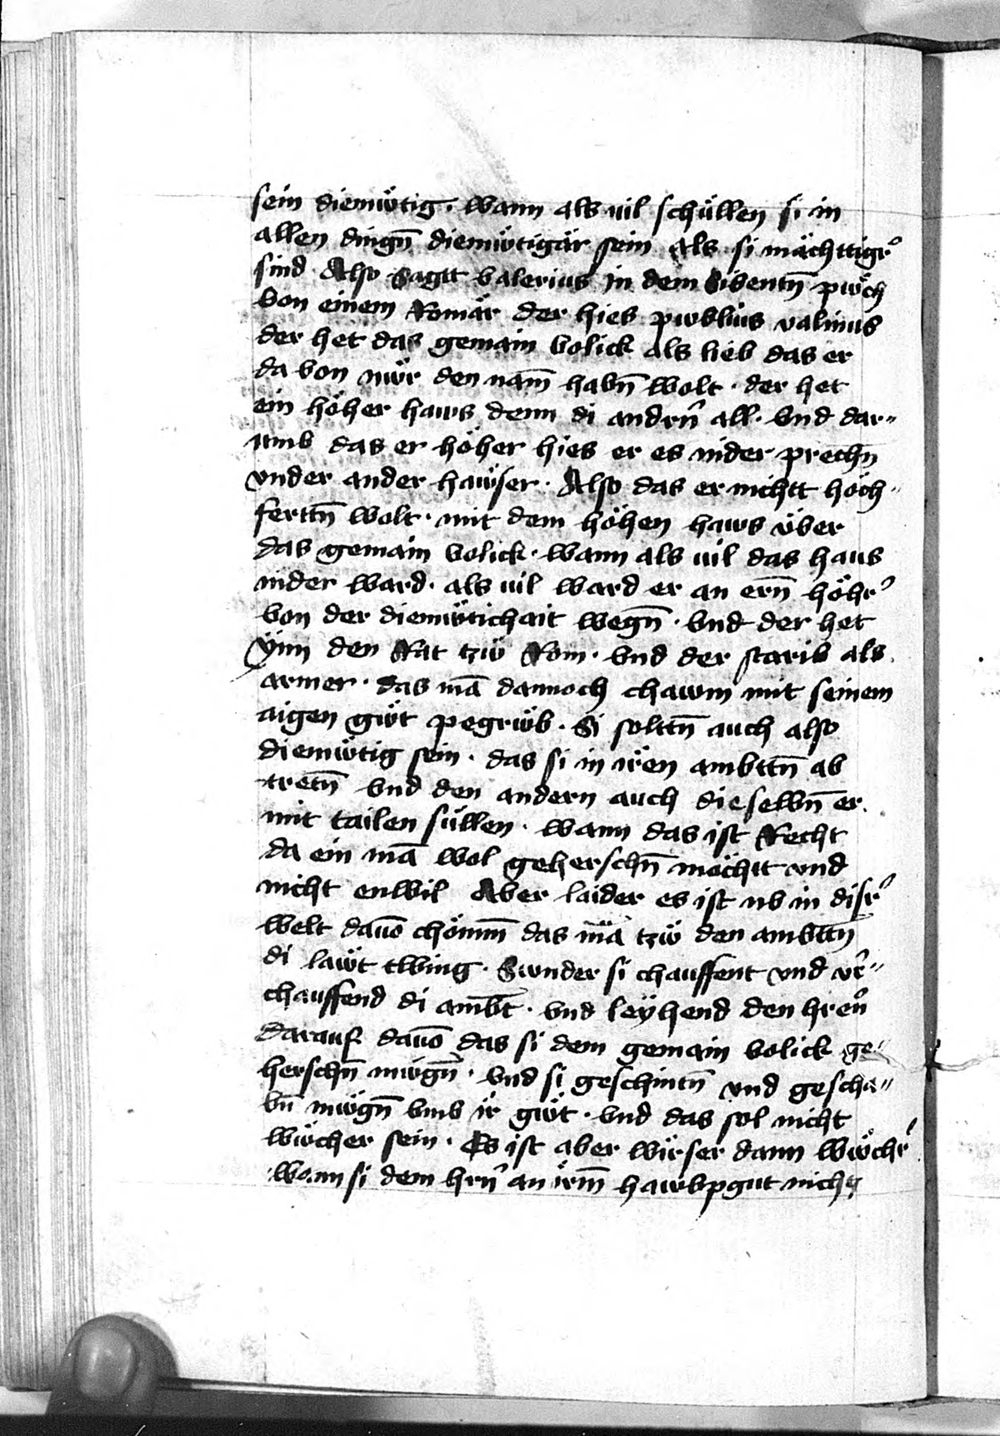 sein diemẅtig · wann als uil schüllen si in
allen dingn̄ diemẅtigär sein Als si mächttigr̉
sind Also Sagtt valerius in dem Sibentn̄ pẅch
von einem Romär der hies pwblius valinus
der het das gemain volick als lieb das er
da von nẅr den nam̄ habn̄ wolt · der het
ein höher haws denn di andrn̉ all · vnd dar〃
vmb das er höher hies er es nider prechn̄
vnder ander haẅser · Also das er nichtt höch〃
ferttn̄ wolt · mit dem höhen haws v̈ber
das gemain volick · wann als uil das haus
nider ward · als uil ward er an ern̄ höhr̉
von der diemẅtichait wegn̄ · vnd der het
ÿnn den Rat tzẅ Rom · vnd der starib als
armer · das mā dannoch chawm mit seinem
aigen gẅt pegrẅb · Si solttn̄ auch also
diemẅtig sein · das si in iren ambttn̄ ab
tretn̄ vnd den andern auch dieselbn̄ er
mit tailen süllen · wann das ist Recht
da ein mā wol geherschn̄ möchtt vnd
nicht enwil Aber laider es ist nv in disr̉
welt dauō chömm̄ das mā tzẅ den ambttn̄
di lawt twing · Swnder si chauffent vnd vr̉〃
chauffend di ambt̄ · vnd leÿhend den hren̉
darauf dauō das si dem gemain volick ge〃
herschn̄ mẅgn̄ · vnd si geschintn̄ vnd gescha〃
bn̄ mẅgn̄ vmb ir gẅt · vnd das sol nicht
wẅcher sein · Es ist aber wirser dann wẅchr̉
wann si dem hrn̉ an irm̄ hawbpgut nichtz